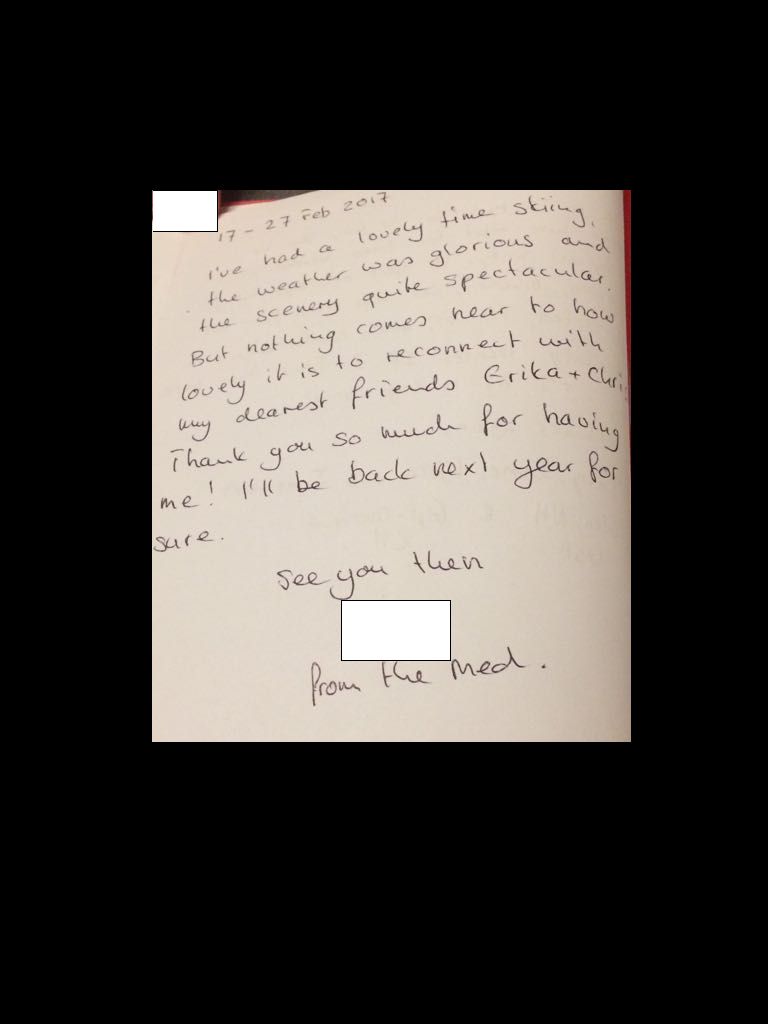 17 - 27 Feb 2017
I've had a lovely time skiing,
the weather was glorious and
the scenery quite spectacular.
But nothing comes near to how
lovely it is to reconnect with
my dearest friends Erika + Chri
Thank you so much for having
me! I'll be back next year for
sure.
See you then
from the Med.